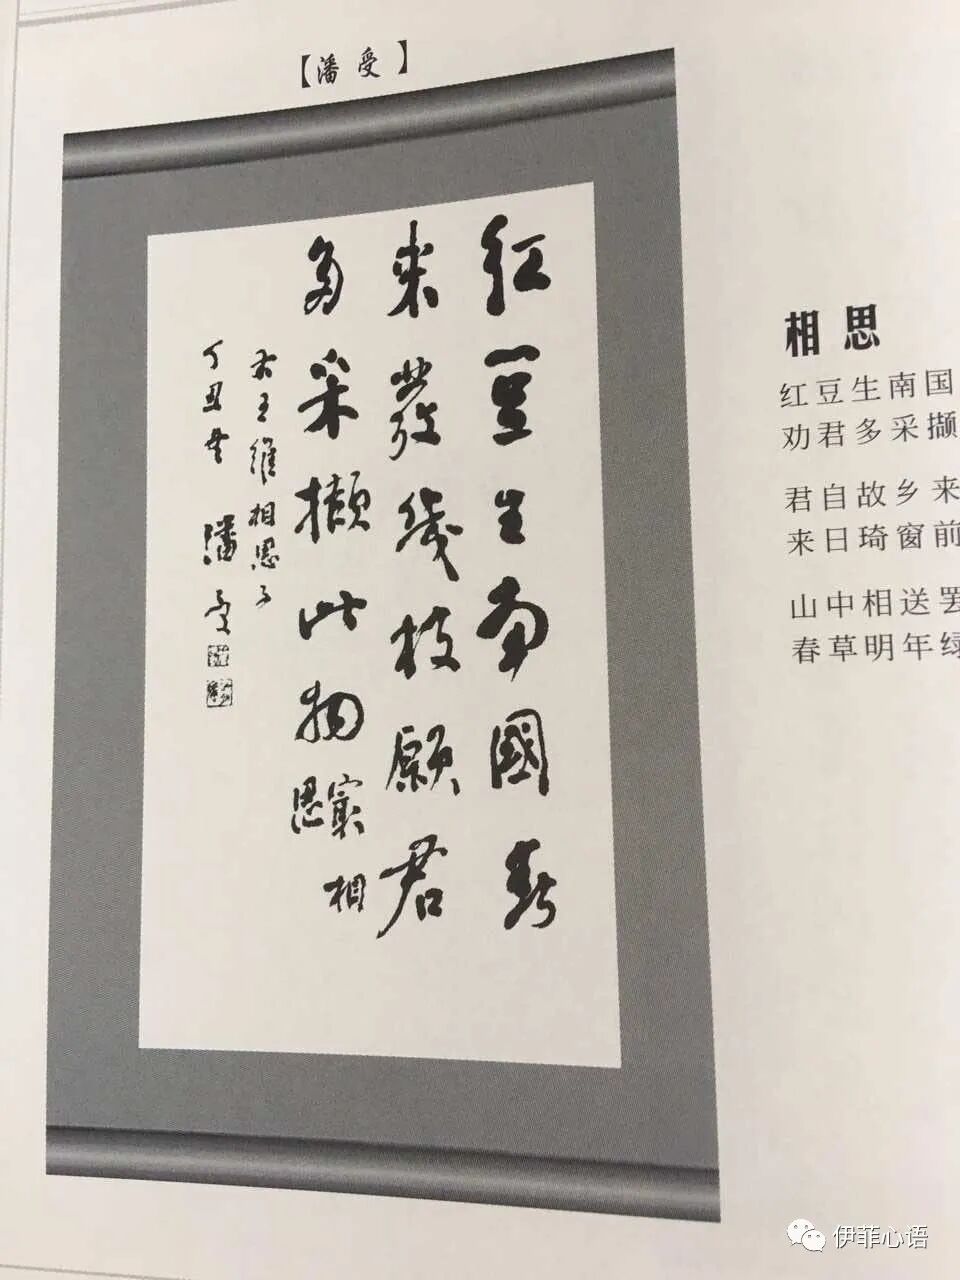 【潘受】
红豆生南國春
来發幾枝願君
多采擷此物寂相
思
右王维相思子
丁丑年 潘受
相思
红豆生南国
劝君多采撷
君自故乡来
来日琦窗前
山中相送罢
春草明年绿
伊菲心语